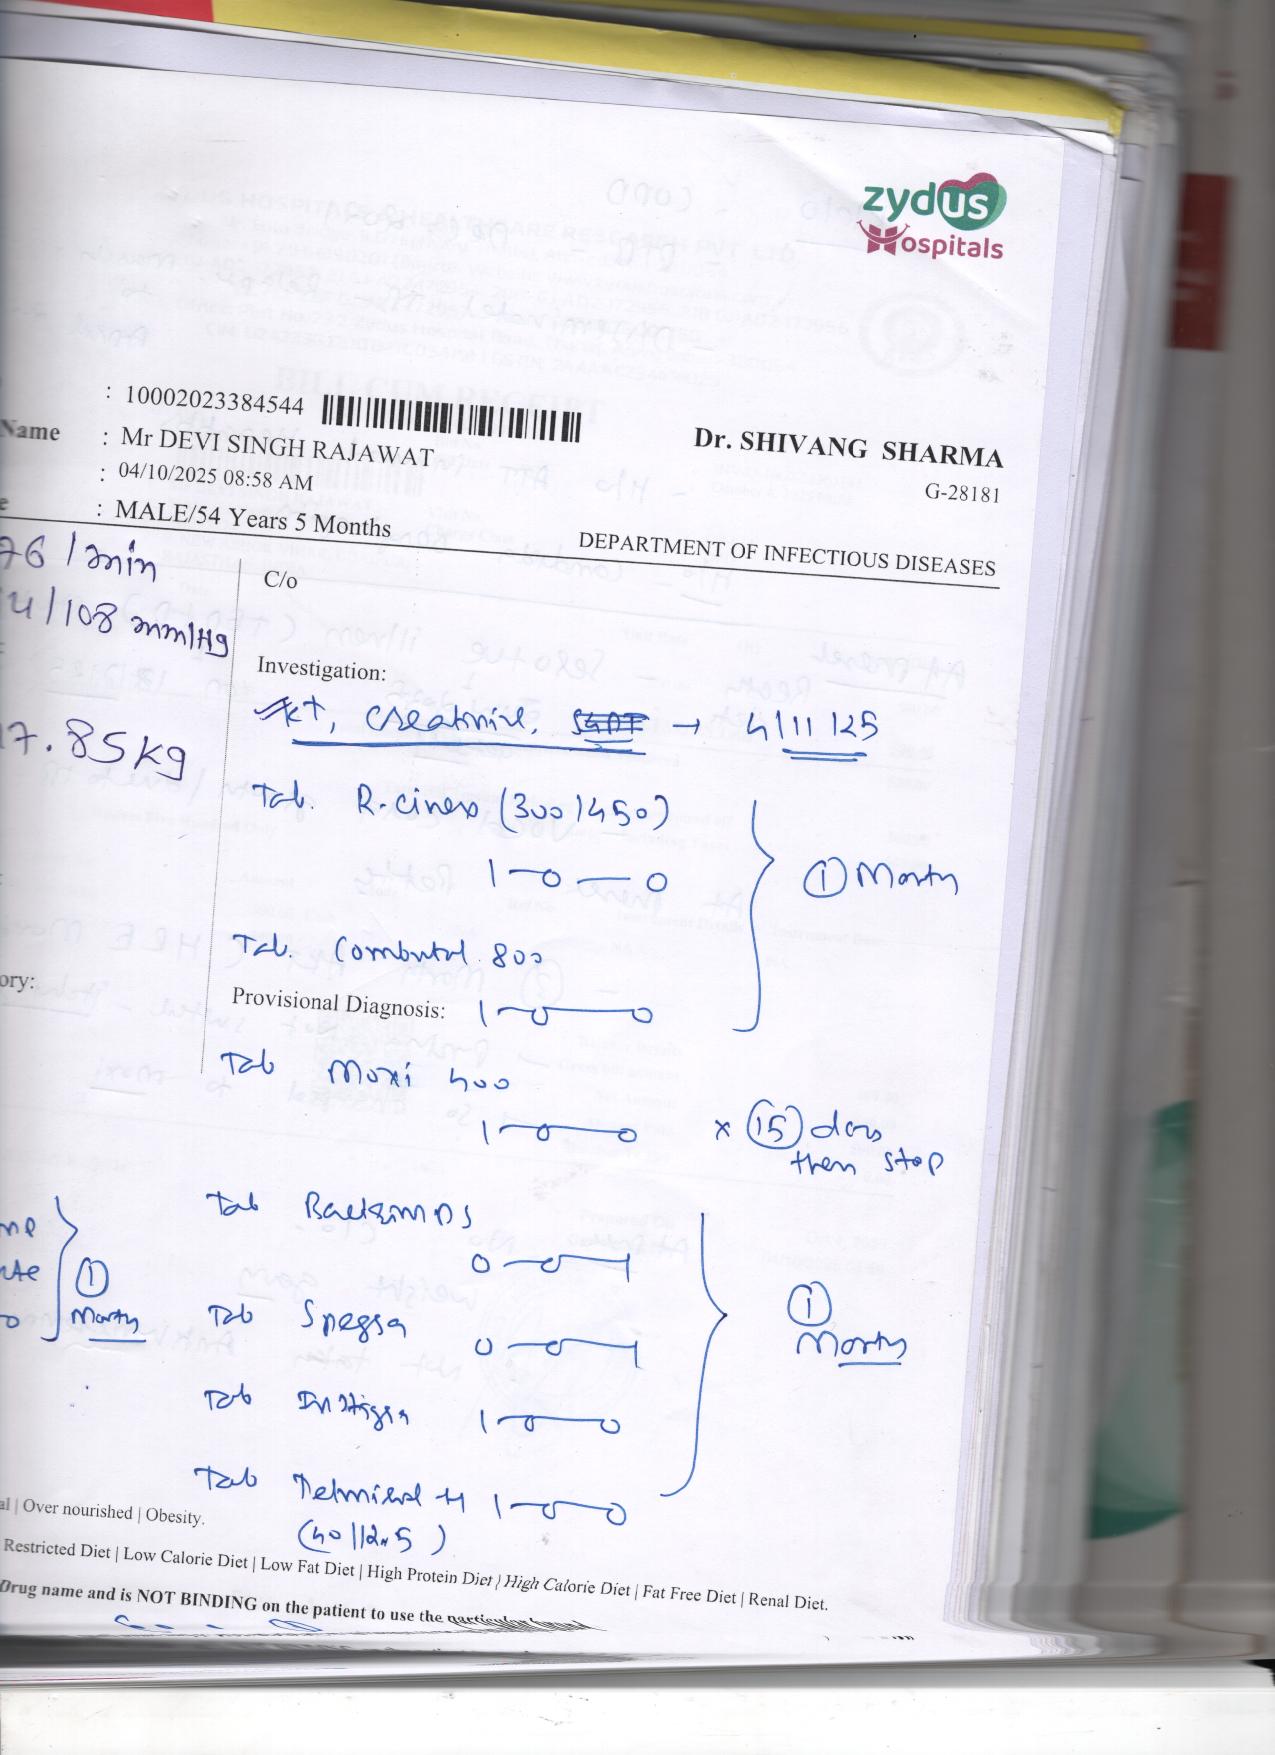 zydus
Hospitals
: 10002023384544
Name : Mr DEVI SINGH RAJAWAT
: 04/10/2025 08:58 AM
: MALE/54 Years 5 Months
Dr. SHIVANG SHARMA
G-28181
DEPARTMENT OF INFECTIOUS DISEASES
76 /min
4/108 mmHg
7.85 kg
C/o
Investigation:
creatinine, → 4/11/25
Tab. R-cinex (300/450)
1-0-0
} ① Month
Tab. Combutol 800
ory:
Provisional Diagnosis:
1-0-0
Tab Moxi 400
1-0-0 x ⑮ days
then stop
Tab DS
0-0-1
① Month
Tab
0-0-1
} ① Month
Tab
1-0-0
Tab H 1-0-0
(40/12.5)
al | Over nourished | Obesity.
Restricted Diet | Low Calorie Diet | Low Fat Diet | High Protein Diet | High Calorie Diet | Fat Free Diet | Renal Diet.
Drug name and is NOT BINDING on the patient to use the particular